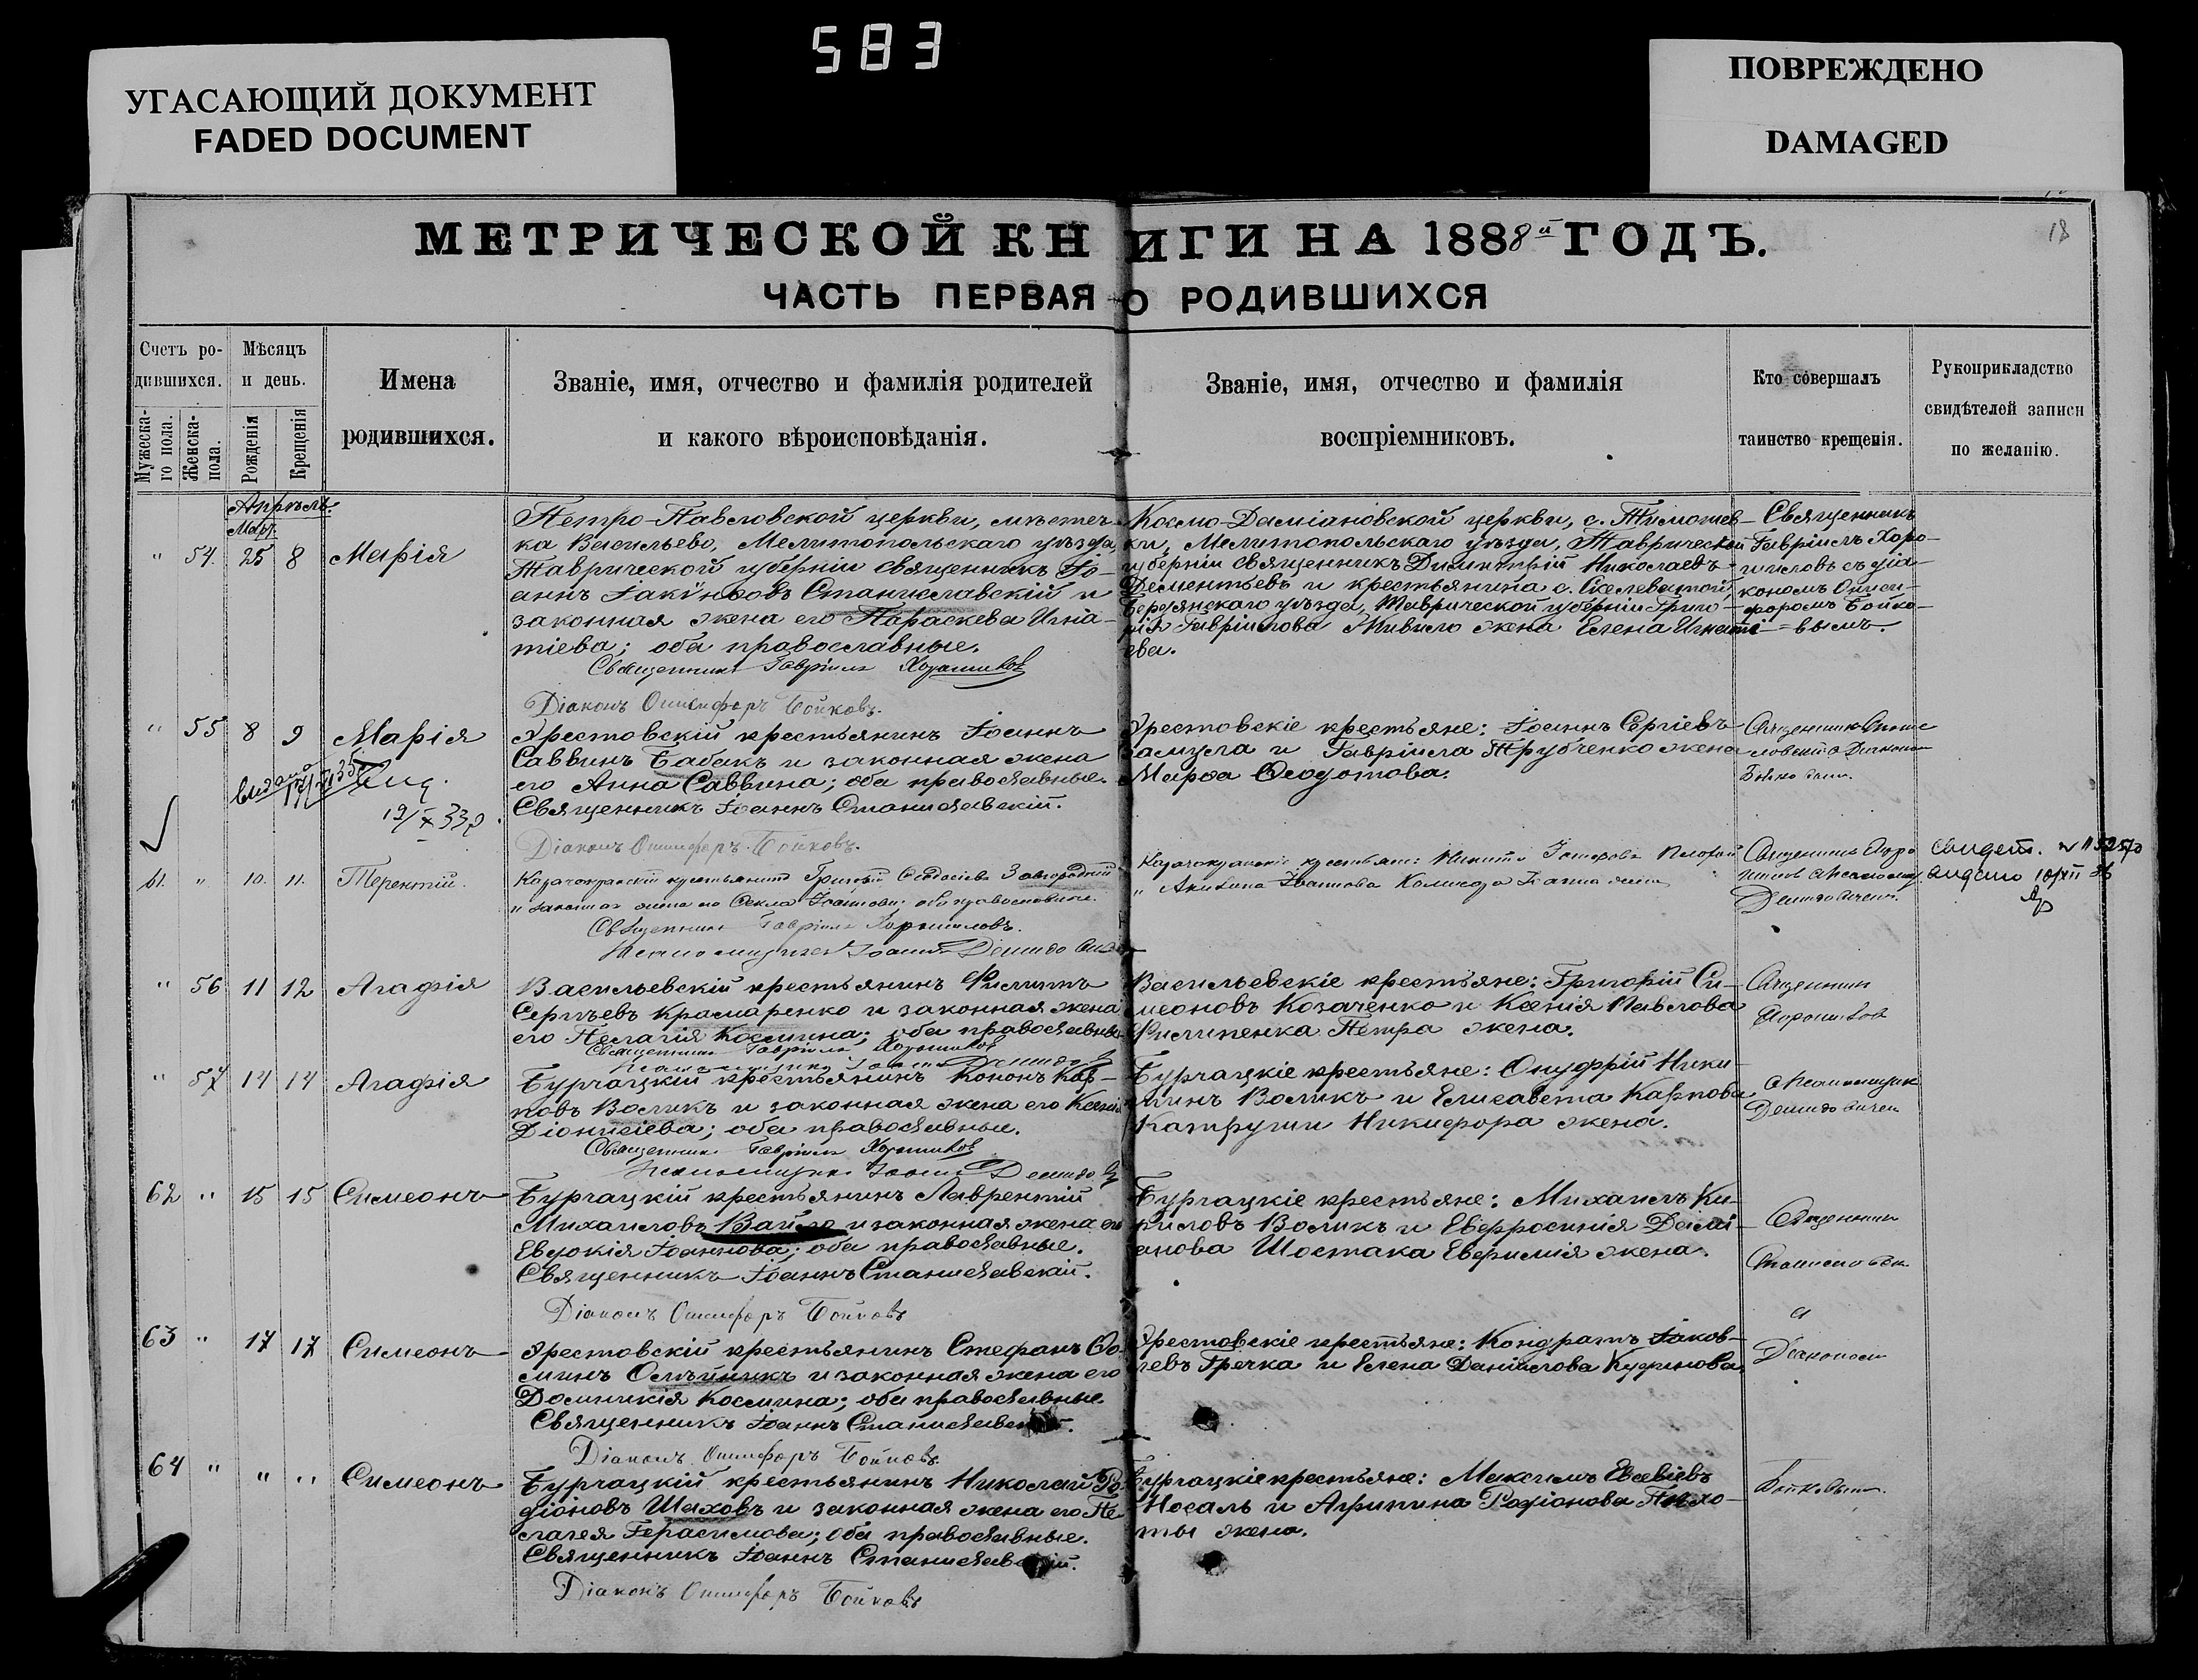 583
УГАСАЮЩИЙ ДОКУМЕНТ
FADED DOCUMENT
ПОВРЕЖДЕНО
DAMAGED
18
МЕТРИЧЕСКОЙ КНИГИ НА 1888й ГОДЪ.
ЧАСТЬ ПЕРВАЯ О РОДИВШИХСЯ
Счетъ ро-
дившихся.
Мужеска-
го пола.
Женска-
пола.
Мѣсяцъ
и день.
Рожденія
Крещенія
Имена
родившихся.
Званіе, имя, отчество и фамилія родителей
и какого вѣроисповѣданія.
Званіе, имя, отчество и фамилія
воспріемниковъ.
Кто совершалъ
таинство крещенія.
Рукоприкладство
свидѣтелей записи
по желанію.
Апрѣль
Мар.
" 54. 25 8 Марія
Петро-Павловской церкви, мѣстеч-
ка Васильево, Мелитопольскаго уѣзда,
Таврической губерніи священникъ Іо-
аннъ Іакинѳовъ Станиславскій и
законная жена его Параскева Игна-
тіева; оба православные.
Священникъ Гавріилъ Хорошиловъ
Діаконъ Онисифоръ Бойковъ.
Космо-Даміановской церкви, с. Тимошев-
ки, Мелитопольскаго уѣзда, Таврической
губерніи священникъ Димитрій Николаевъ
Дементьевъ и крестьянина с. Скелеватой,
Бердянскаго уѣзда, Таврической губерніи Григо-
рія Гавріилова жена Елена Игнаті-
ева.
Священникъ
Гавріилъ Хоро-
шиловъ съ діа-
кономъ Ониси-
форомъ Бойко-
вымъ.
" 55 8 9 Марія
12/X 33
Орестовскій крестьянинъ Іоаннъ
Саввинъ Бабакъ и законная жена
его Анна Саввина; оба православные.
Священникъ Іоаннъ Станиславскій.
Діаконъ Онисифоръ Бойковъ.
Орестовскіе крестьяне: Іоаннъ Сергіевъ
и Гавріила Трубченко жена
Марѳа Ѳеодотова.
61. " 10. 11. Терентій.
крестьянинъ Григорій Ѳеодосіевъ Завгородній
и законная жена его Ѳекла Іоаннова; оба православные.
Священникъ Гавріилъ Хорошиловъ.
Псаломщикъ Іоаннъ
крестьяне: Никита
и Акилина Иванова
Священникъ
свидет.
видано 10/XII 36
" 56 11 12 Агафія
Васильевскій крестьянинъ Филиппъ
Сергѣевъ Крамаренко и законная жена
его Пелагія Космина; оба православные.
Священникъ Гавріилъ Хорошиловъ
Васильевскіе крестьяне: Григорій Си-
меоновъ Козаченко и Ксенія Павлова
Филипенка Петра жена.
Священникъ
Хорошиловъ
" 57 14 14 Агафія
Бурчацкій крестьянинъ Кононъ Кар-
повъ Воликъ и законная жена его Ксенія
Діонисіева; оба православные.
Священникъ Гавріилъ Хорошиловъ
Псаломщикъ Іоаннъ
Бурчацкіе крестьяне: Онуфрій Ники-
тинъ Воликъ и Елисавета Карпова
Катруши Никифора жена.
Псаломщикъ
62 " 15 15 Симеонъ
Бурчацкій крестьянинъ Лаврентій
Михаиловъ Вайло и законная жена его
Евдокія Іоаннова; оба православные.
Священникъ Іоаннъ Станиславскій.
Діаконъ Онисифоръ Бойковъ
Бурчацкіе крестьяне: Михаилъ Ки-
риловъ Воликъ и Евфросинія Дамі-
анова Шостака Евфимія жена.
Священникъ
63 " 17 17 Симеонъ
Орестовскій крестьянинъ Стефанъ Ѳо-
минъ Олѣйникъ и законная жена его
Домникія Космина; оба православные.
Священникъ Іоаннъ Станиславскій.
Діаконъ Онисифоръ Бойковъ.
Орестовскіе крестьяне: Кондратъ Іаков-
левъ Гречка и Елена Даніилова Кудинова.
и
Діакономъ
64 " " " Симеонъ
Бурчацкій крестьянинъ Николай Ро-
діоновъ Шаховъ и законная жена его Пе-
лагея Герасимова; оба православные.
Священникъ Іоаннъ Станиславскій.
Діаконъ Онисифоръ Бойковъ
Бурчацкіе крестьяне: Максимъ Евсевіевъ
Носаль и Агрипина Родіонова Пѣхо-
ты жена.
Бойковымъ.